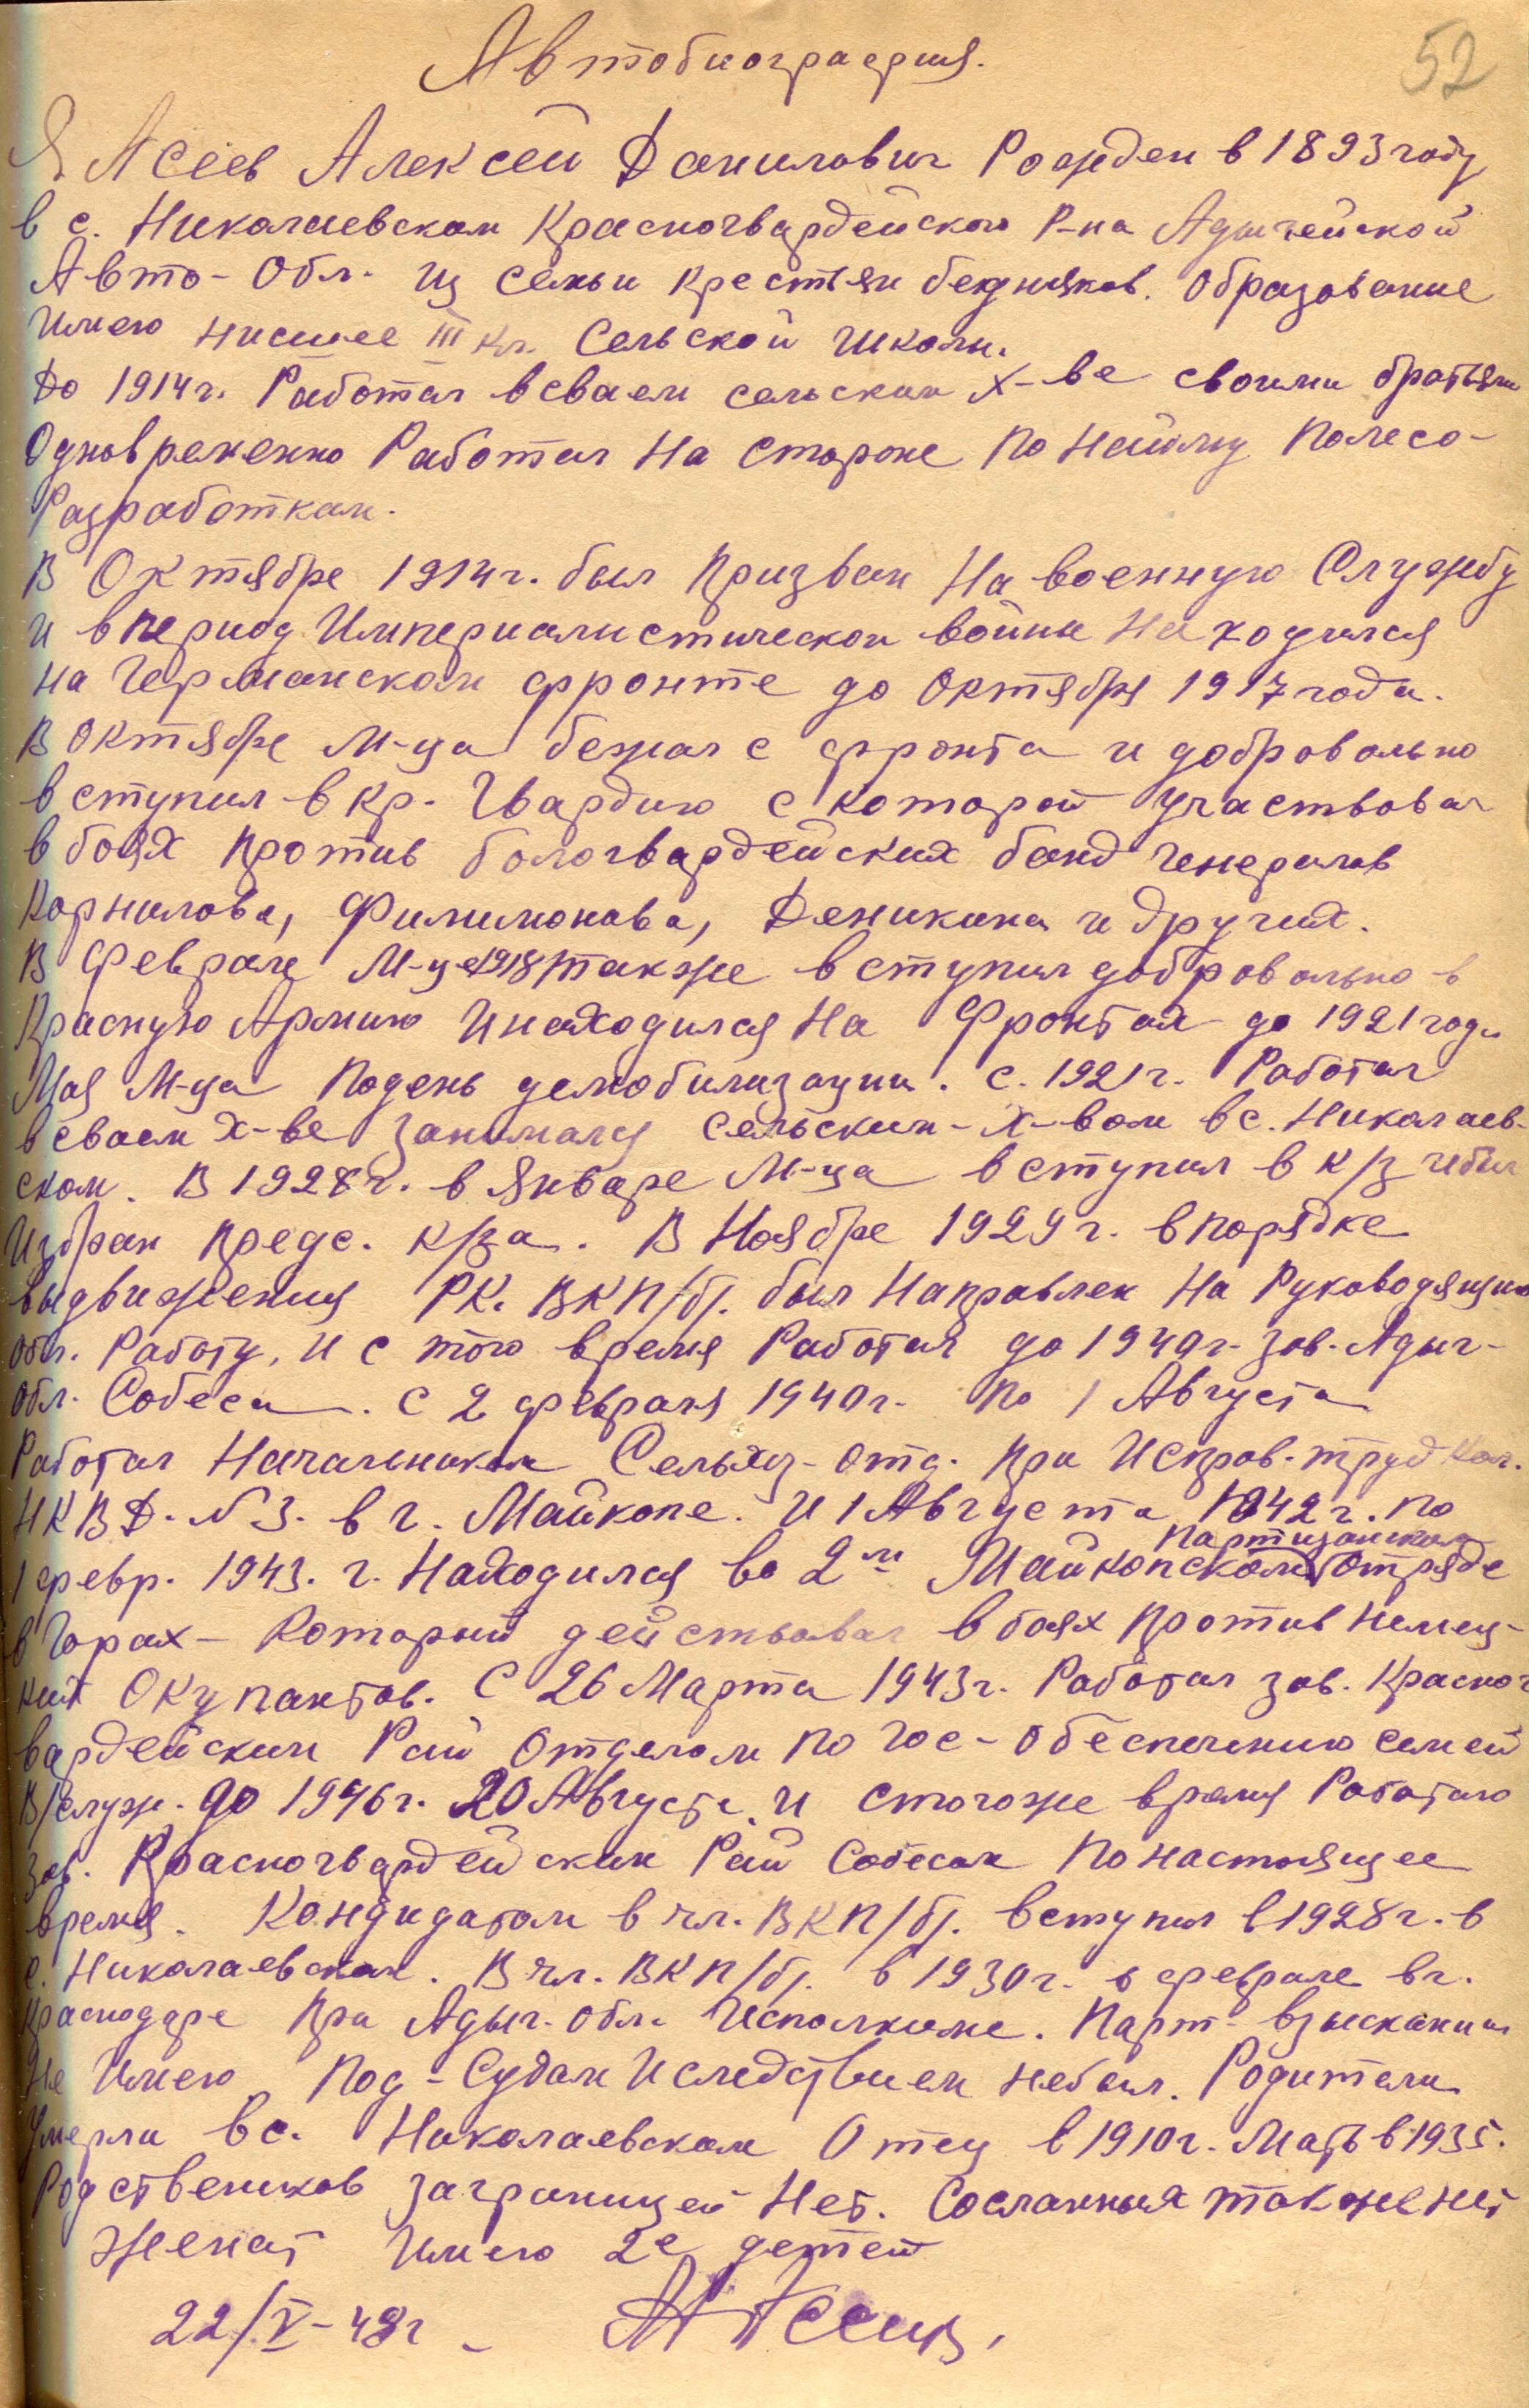 52
Автобиография.
Я Асеев Алексей Данилович Рожден в 1893 году
в с. Николаевском Красногвардейского Р-на Адыгейской
Авто-Обл. из семьи крестьян бедняков. Образование
Имею нисшее III кл. Сельской школы.
До 1914 г. Работал в сваем сельском х-ве своими братьями
Одновременно Работал На стороне По Найму Полесо-
Разработкам.
В Октябре 1914 г. был Призван На военную Службу
и в период Империалистической войны Находился
на Германском фронте до Октября 1917 года.
В октябре М-ца бежал с фронта и добровольно
вступил в Кр. Гвардию с которой участвовал
в боях против бологвардейских банд генералов
Корнилова, Филимонова, Деникина и других.
В Феврале М-це 1918 также вступил добровольно в
Красную Армию И находился На Фронтах до 1921 года
Мая М-ца По день демобилизации. с. 1921 г. Работал
в сваем х-ве занимался Сельским-х-вом в с. Николаев-
ском. В 1928 г. в январе М-ца вступил в к/з и был
Избран предс. к/за. В Ноябре 1929 г. в порядке
выдвижения РК. ВКП/б/. был Направлен На Руководящую
обл. Работу, И с того время Работал до 1940 г. зав. Адыг-
обл. Собеса. С 2 февраля 1940 г. По 1 Августа
Работал Начальником Сельхоз-отд. при Исправ-труд Кол.
НКВД. № 3. в г. Майкопе. И 1 Августа 1942 г. по
1 февр. 1943. г. Находился во 2м Майкопском партизанском отряде
в Горах – Который действовал в боях против немец-
ких Окупантов. С 26 Марта 1943 г. Работал зав. Красног
вардейским Рай Отделом по Гос-обеспечению семей
В/служ. до 1946 г. 20 Августа. И стогоже время Работаю
зав. Красногвардейским Рай Собесом По настоящее
время. Кондидатом в чл. ВКП/б/. вступил в 1928 г. в
с. Николаевском. В чл. ВКП/б/. в 1930 г. в феврале в г.
Краснодаре при Адыг. обл. Исполкоме. Парт-взыскании
Не Имею Под-Судом И следствием небыл. Родители
Умерли в с. Николаевском Отец в 1910 г. Мать в 1935.
Родствеников заграницей Нет. Сосланных также нет
Женат Имею 2е детей
22/V-48 г. Асеев